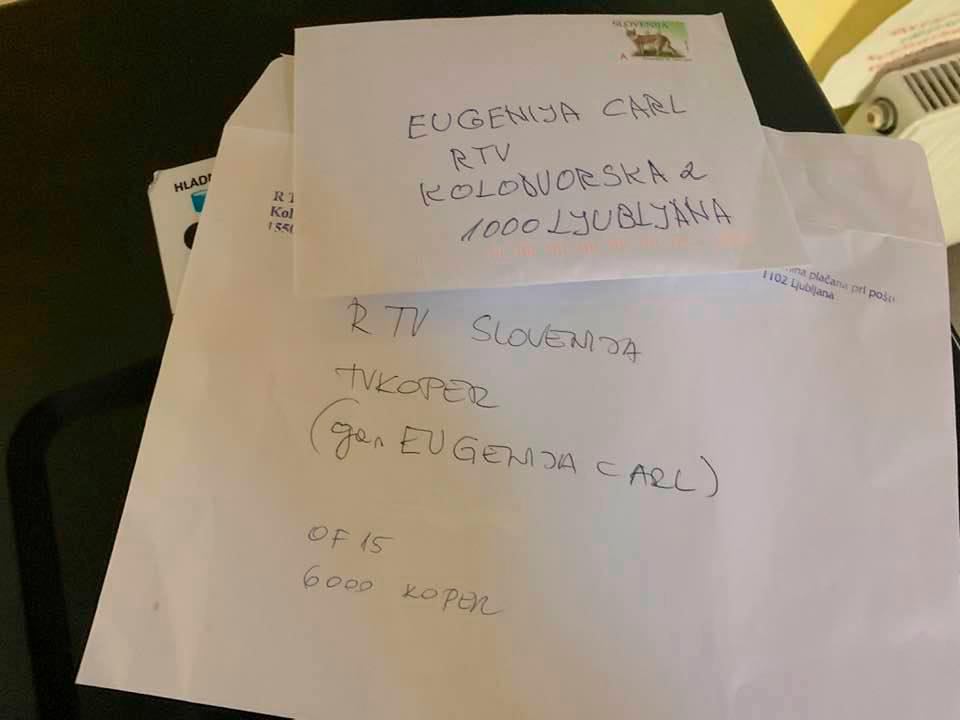 SLOVENIJA
A
EUGENIJA CARL
RTV
KOLODVORSKA 2
1000 LJUBLJANA
HLADI
R T
Kol
1550
nina plačana pri pošti
1102 Ljubljana
R TV SLOVENIJA
TVKOPER
(ga. EUGENIJA CARL)
OF 15
6000 KOPER